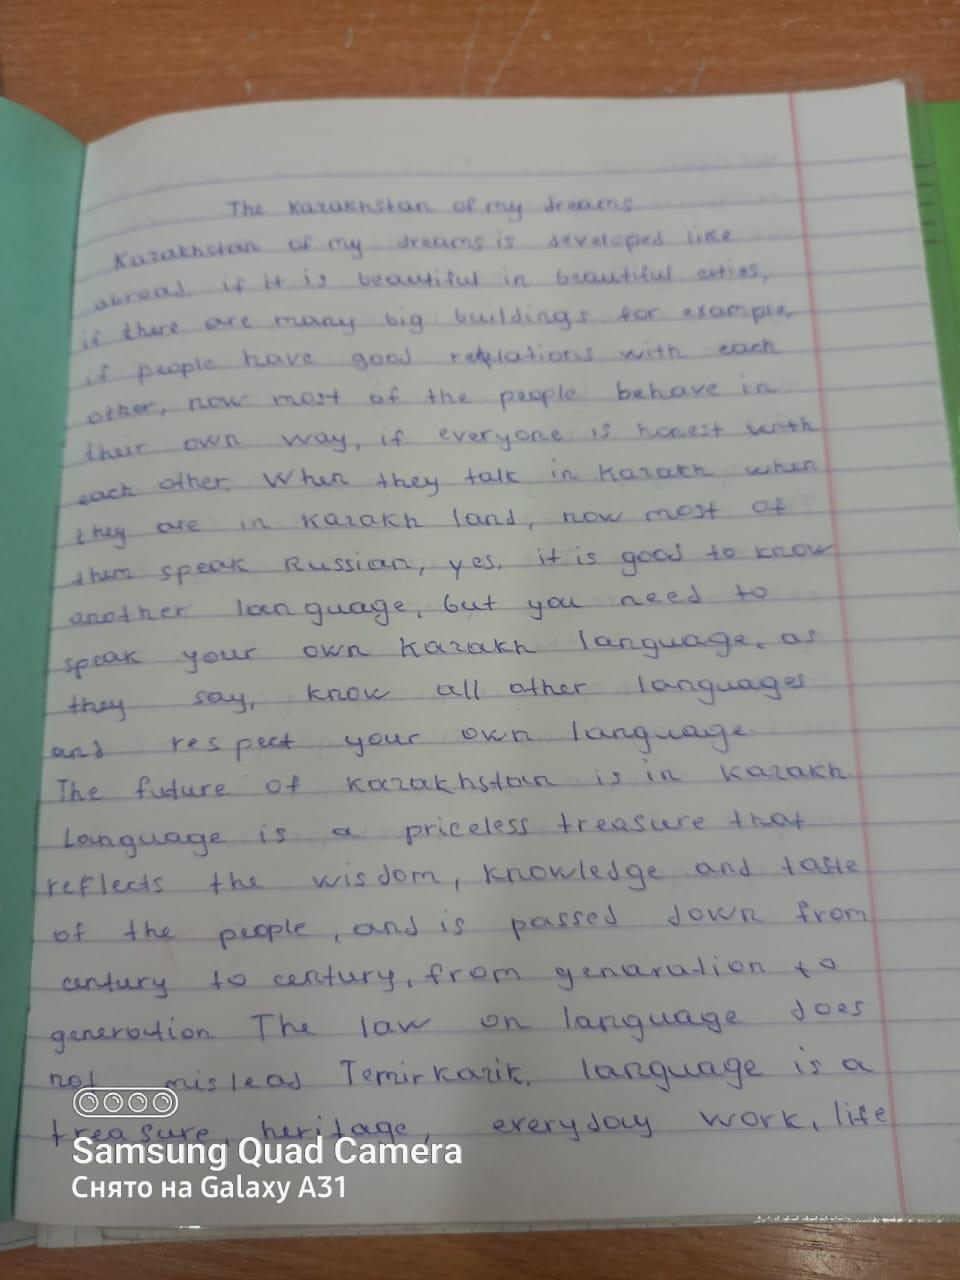 The Kazakhstan of my dreams
Kazakhstan of my dreams is developed like
abroad. if it is beautiful in beautiful cities,
if there are many big buildings for example,
if people have good relations with each
other, now most of the people behave in
their own way, if everyone is honest with
each other. When they talk in Kazakh when
they are in Kazakh land, now most of
them speak Russian, yes, it is good to know
another language, but you need to
speak your own Kazakh language. as
they say, know all other languages
and respect your own language.
The future of Kazakhstan is in Kazakh
Language is a priceless treasure that
reflects the wisdom, knowledge and taste
of the people, and is passed down from
century to century, from genaration to
generation The law on language does
not mislead Temirkazik. language is a
treasure, heritage, everyday work, life
Samsung Quad Camera
Снято на Galaxy A31